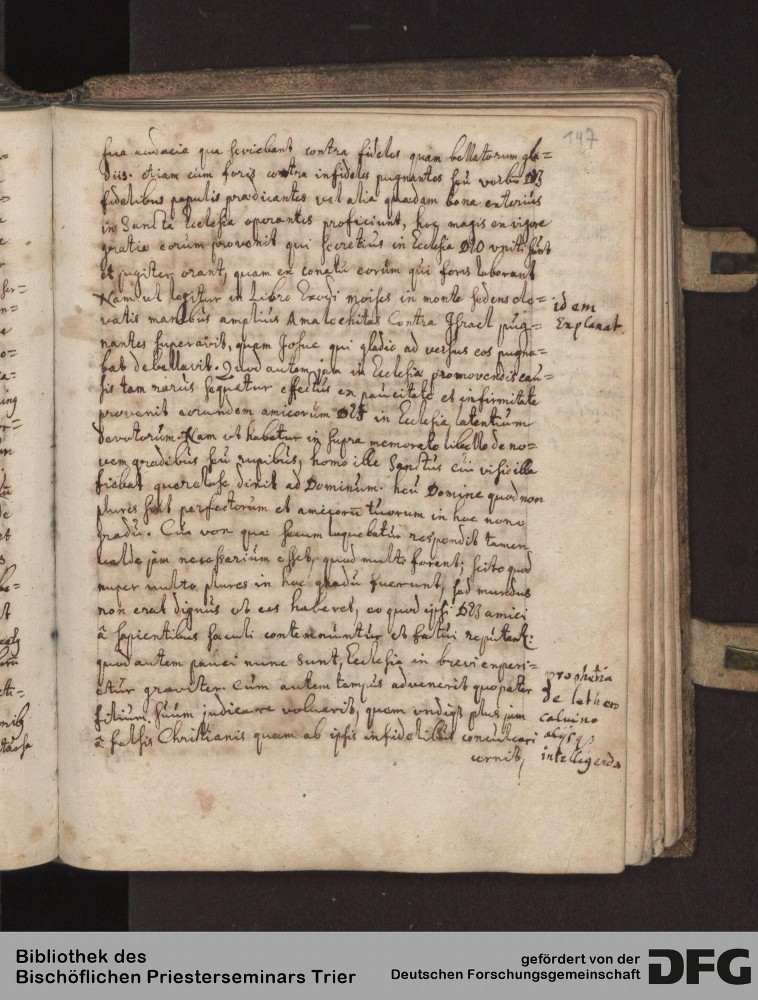 147
sua audacia qua serviebant contra fideles quam bellatorum gla=
diis. etiam cum foris contra infideles pugnantes seu verbū DEI
fidelibus populis praedicantes vel alia quaedam bona exterius
in Sancta Ecclesia operantes proficiunt, hoc magis ex vigore
gratiae eorum provenit qui secretius in Ecclesia DEO uniti sunt
et jugiter orant, quam ex conatu eorum qui foris laborant
Nam ut legitur in Libro Exodi moises in monte sedens ele=
vatis manibus amplius Amalechitas Contra Israel pug=
nantes superavit, quam Josue qui gladio adversus eos pugna=
bat debellavit. Quod autem jam in Ecclesia promovendis cau=
sis tam rarus sequatur effectus ex paucitate et infirmitate
provenit eorundem amicorum DEI in Ecclesia latentium
devotorum. Nam ut habetur in supra memorato libello de no=
vem gradibus seu rupibus, homo ille Sanctus cui visio illa
fiebat querelose dixit ad Dominum. heu Domine quod non
plures sunt perfectorum et amicorū tuorum in hoc nono
gradu. Cui vox quae secum loquebatur respondit tamen
valde jam necessarium esset, quod multi forent; scito quod
nuper multo plures in hoc gradu fuerunt, sed mundus
non erat dignus ut eos haberet, eo quod ipsi DEI amici
â sapientibus saeculi contemnuntur et fatui reputant:
quod autem pauci nunc sunt, Ecclesia in brevi experi=
etur graviter. Cum autem tempus advenerit quo pater
filium suum judicare voluerit, quem undiq plus jam
â falsis Christianis quam ab ipsis infidelibus conculcari
cernit,
idem
Explanat.
prophetia
de luthero
calvino
alijsq
intelligenda
Bibliothek des
Bischöflichen Priesterseminars Trier
gefördert von der
Deutschen Forschungsgemeinschaft
DFG